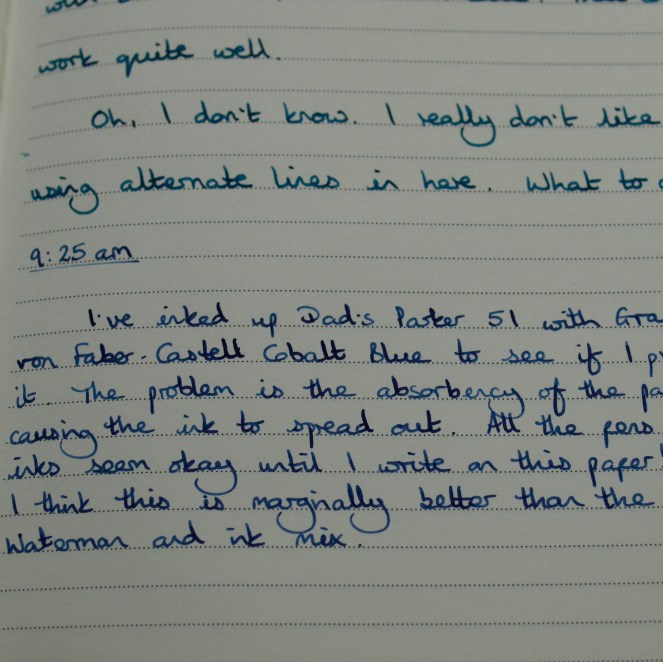 work quite well.
Oh, I don't know. I really don't like
using alternate lines in here. What to
9:25 am
I've inked up Dad's Parker 51 with Gra
von Faber-Castell Cobalt Blue to see if I p
it. The problem is the absorbency of the pa
causing the ink to spread out. All the pens
inks seem okay until I write on this paper!
I think this is marginally better than the
Waterman and ink mix.